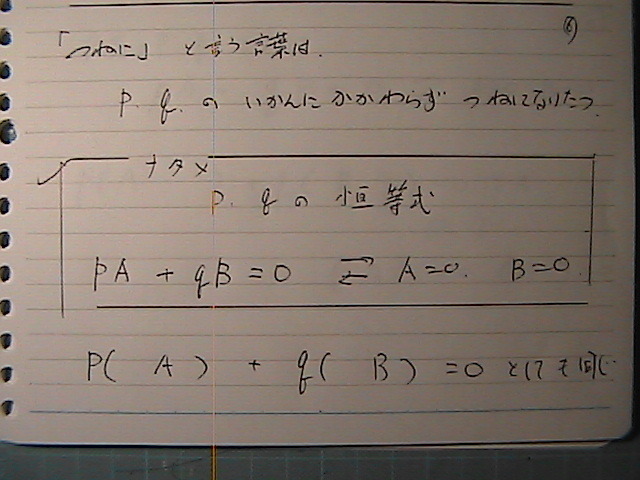 ⑥
「つねに」と言う言葉は.
P. q. の いかんに かかわらず つねになりたつ.
ナタメ
P. q の 恒等式
PA + qB = 0 ⇄ A=0. B=0.
P( A ) + q( B ) = 0 としても同じ